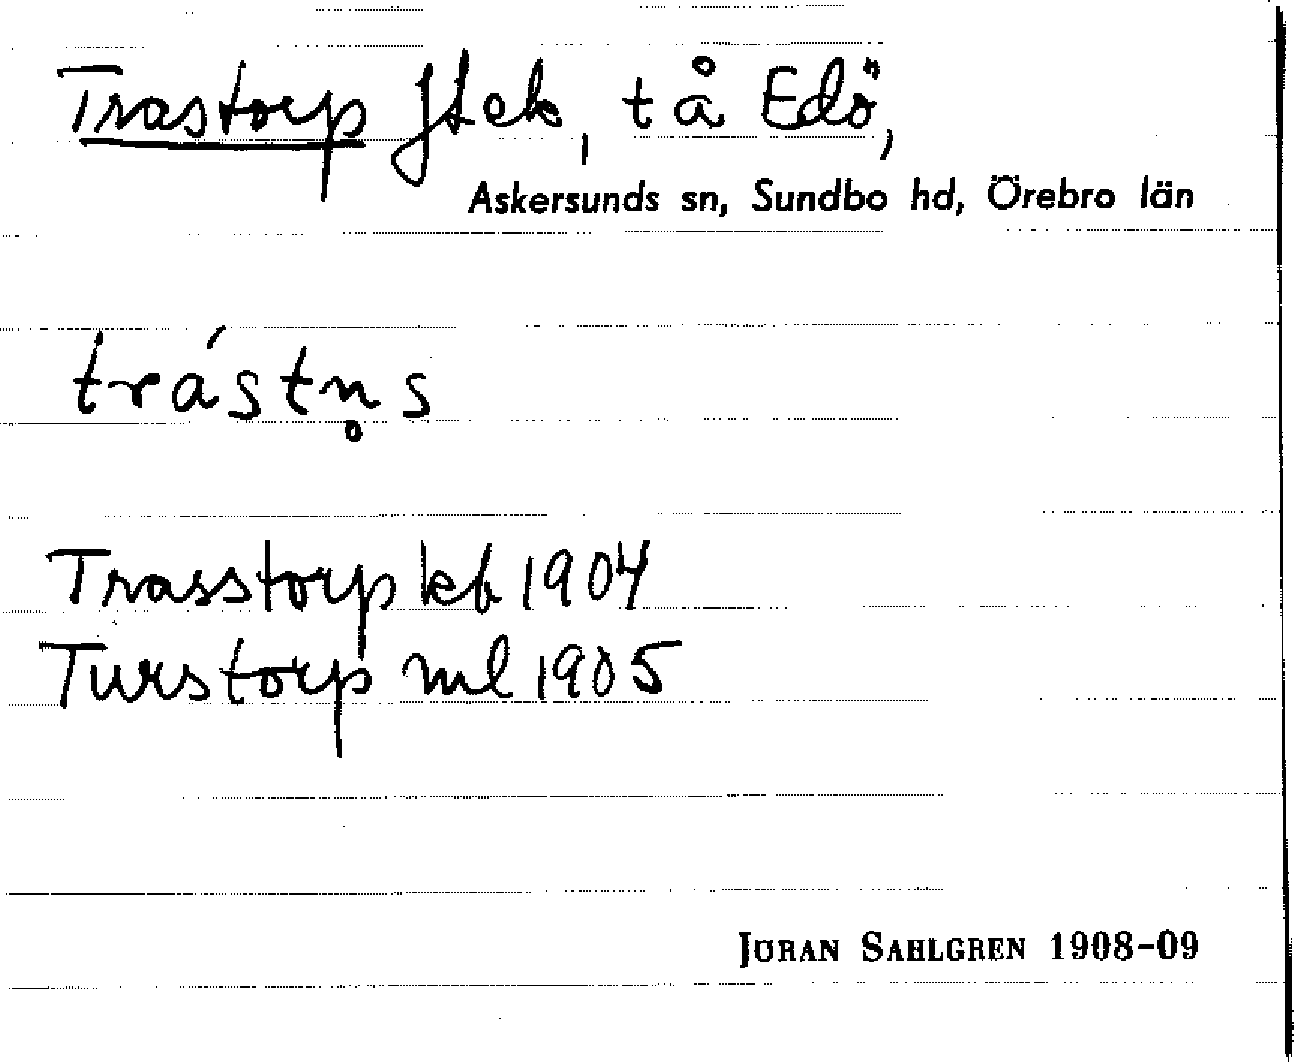 Trastorp fstek, t å Edö,
Askersunds sn, Sundbo hd, Örebro län
trástn̥s
Trasstorp kb 1904
Turstorp ml 1905
JÖRAN SAHLGREN 1908-09